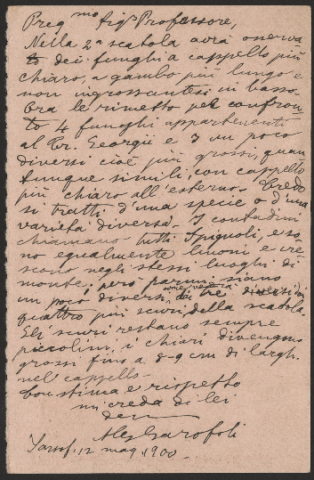 Preg.mo Sig.r Professore,
Nella 2a scatola avrà osserva
to dei funghi a cappello più
chiaro, a gambo più lungo e
non ingrossantesi in basso.
Ora le rimetto pel confron
to 4 funghi appartenenti
al Tr. Georgii e 3 un poco
diversi cioè più grossi, quan
tunque simili, con cappello
più chiaro all'esterno. Credo
si tratti d'una specie o d'una
varietà diversa. I contadini
chiamano tutti Spignoli, e so
no egualmente buoni e cre
scono negli stessi luoghi di
monte, però parmi siano
un poco diversi, i tre dai
quattro più scuri della scatola.
Gli scuri restano sempre
piccolini, i chiari divengono
grossi fino a 8-9 cm di largh.
nel cappello.
Con stima e rispetto
mi creda di lei
Aless Garofoli
12 mag. 1900.